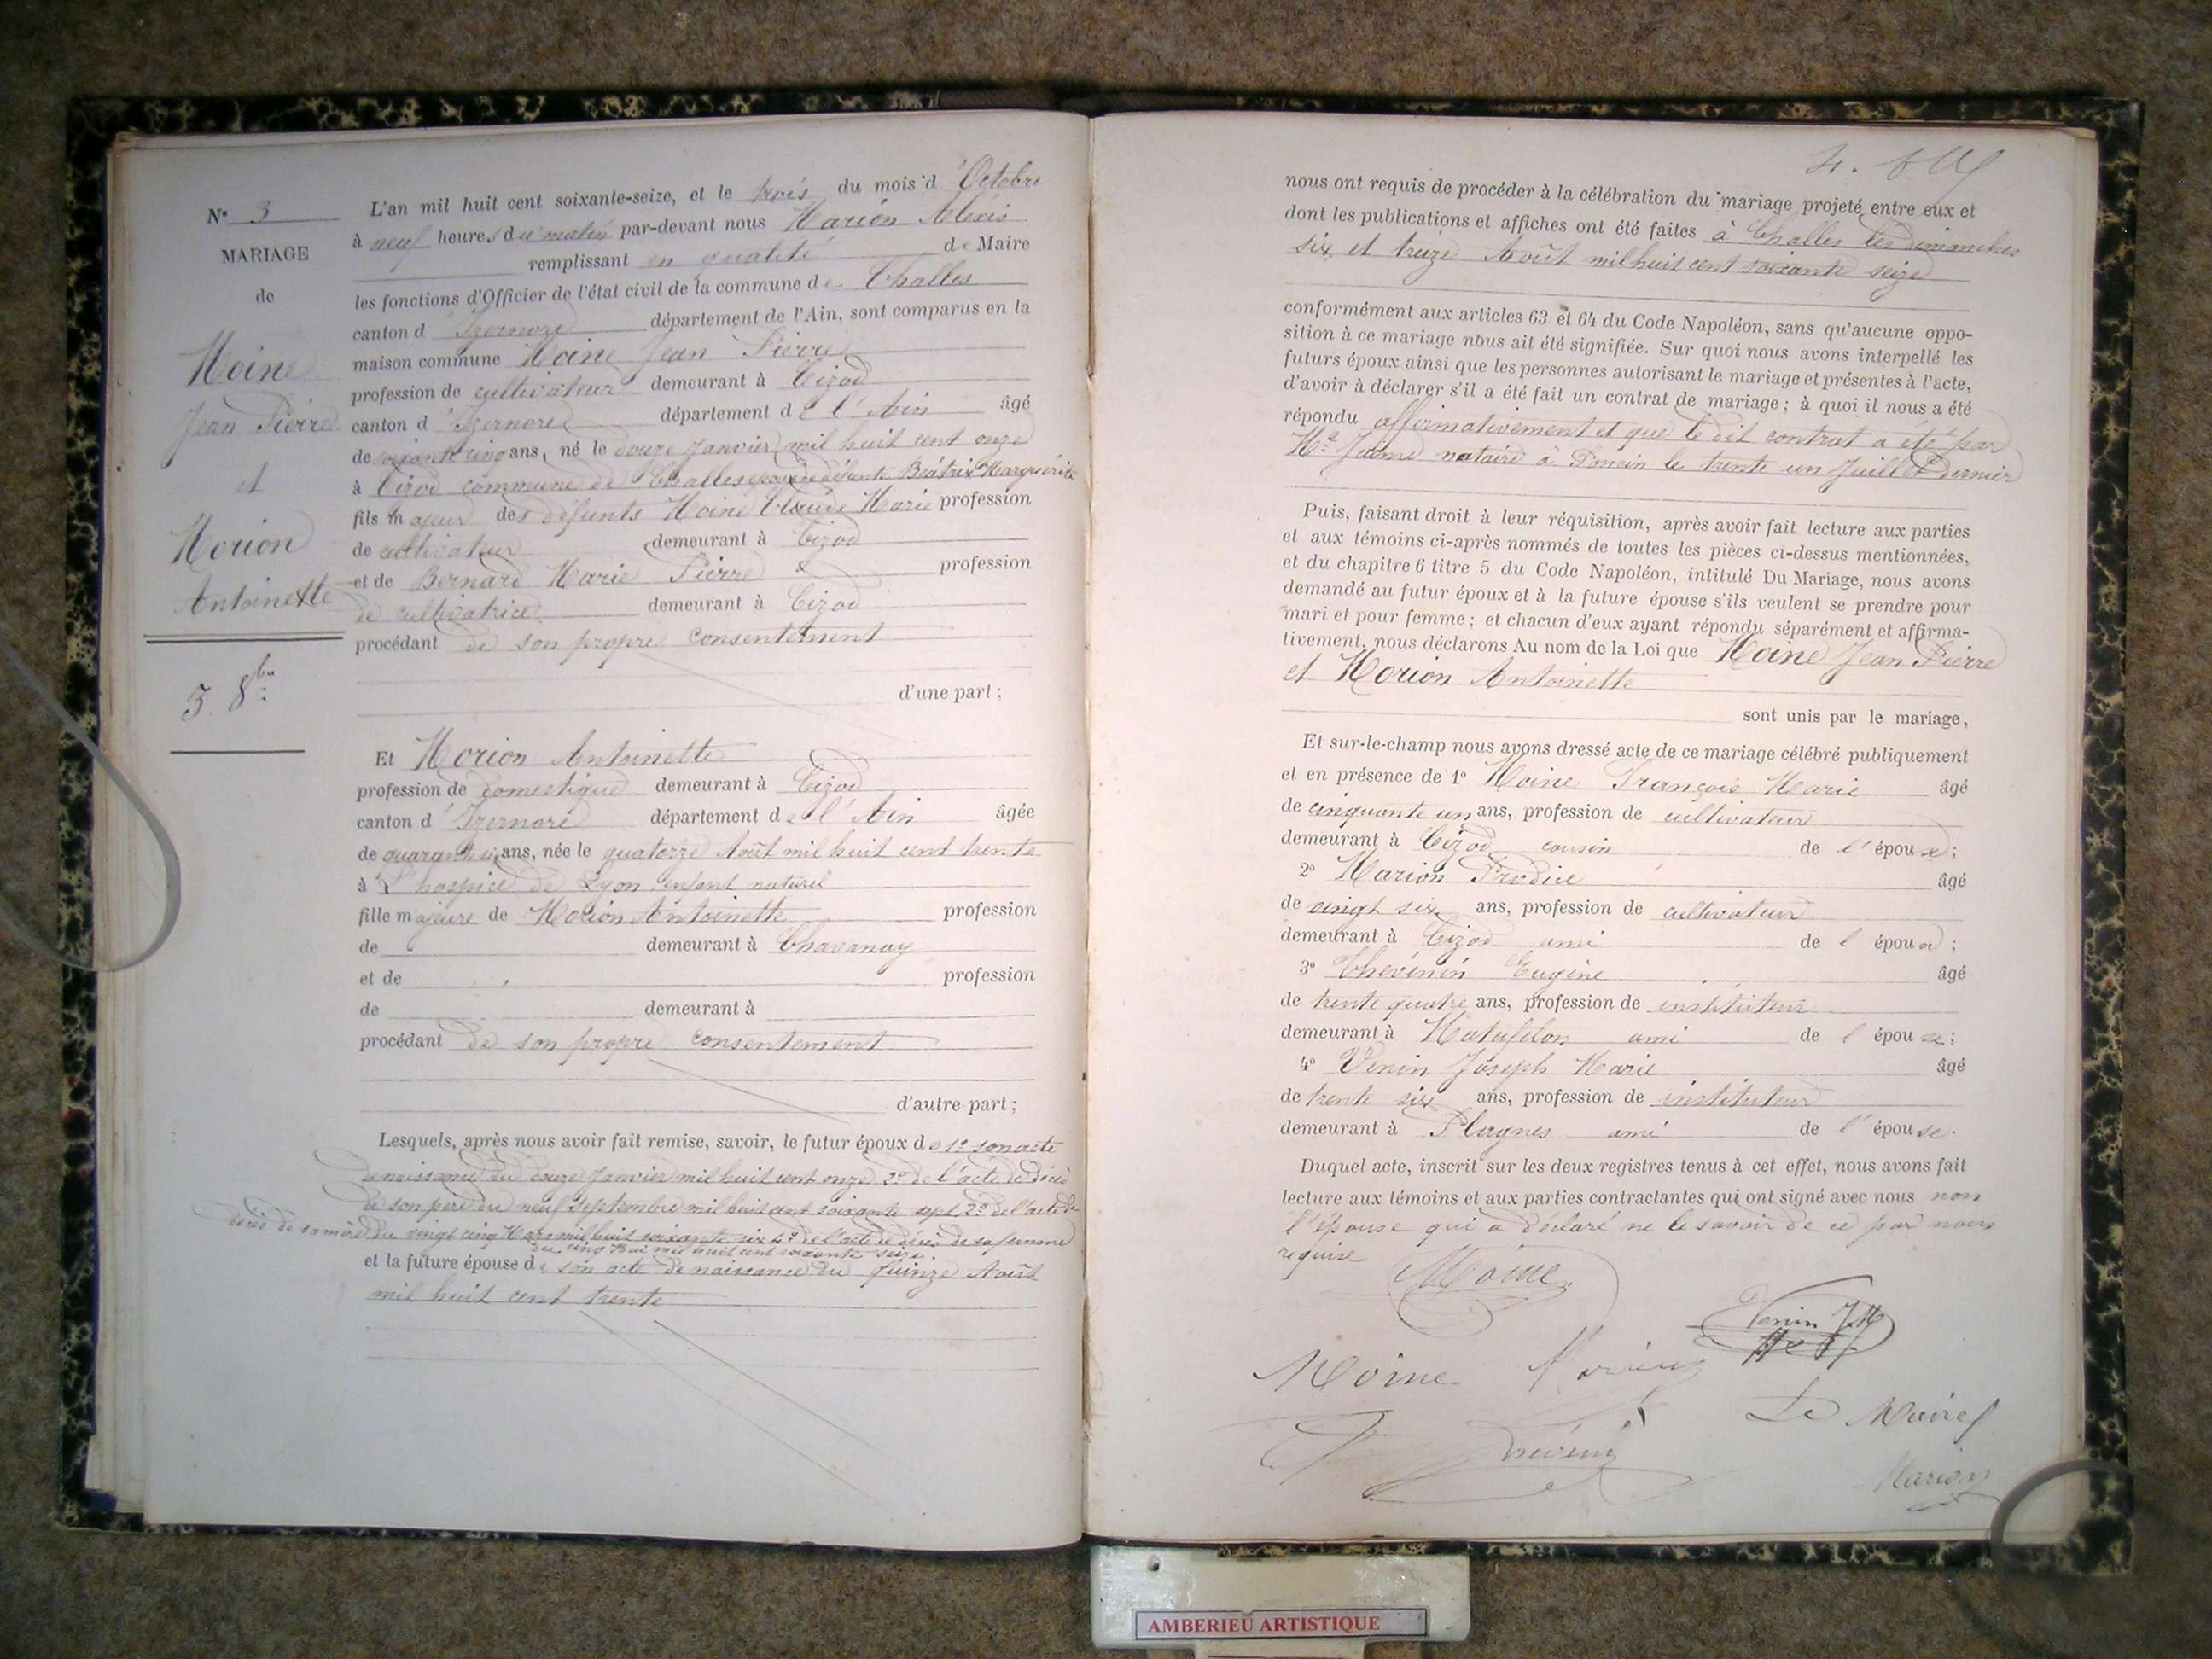 N° 3
MARIAGE
de
Moine
Jean Pierre
et
Morion
Antoinette
3 8bre
L'an mil huit cent soixante-seize, et le trois du mois d'Octobre
à neuf heures du matin par-devant nous Marion Alexis
remplissant en qualité de Maire
les fonctions d'Officier de l'état civil de la commune de Challes
canton d'Izernore département de l'Ain, sont comparus en la
maison commune Moine Jean Pierre
profession de cultivateur demeurant à Cizod
canton d'Izernore département de l'Ain âgé
de soixante cinq ans, né le douze Janvier mil huit cent onze
à Cizod commune de Challes époux de défunte Béatrix Marguérite
fils majeur des défunts Moine Claude Marie profession
de cultivateur demeurant à Cizod
et de Bernard Marie Pierre profession
de cultivatrice demeurant à Cizod
procédant de son propre consentement
d'une part ;
Et Morion Antoinette
profession de domestique demeurant à Cizod
canton d'Izernore département de l'Ain âgée
de quarante six ans, née le quatorze Août mil huit cent trente
à L'hospice de Lyon enfant naturel
fille majeure de Morion Antoinette profession
de demeurant à Chavanay
et de profession
de demeurant à
procédant de son propre consentement
d'autre part ;
Lesquels, après nous avoir fait remise, savoir, le futur époux de 1° son acte
de naissance du douze Janvier mil huit cent onze 2° de l'acte de décès
de son père du neuf Septembre mil huit cent soixante sept, 3° de l'acte de
décès de sa mère du vingt cinq Mars mil huit soixante six 4° de l'acte de décès de sa femme
du cinq Mai mil huit cent soixante seize
et la future épouse de son acte de naissance du quinze Août
mil huit cent trente
nous ont requis de procéder à la célébration du mariage projeté entre eux et
dont les publications et affiches ont été faites à Challes les dimanches
six et treize Août mil huit cent soixante seize
conformément aux articles 63 et 64 du Code Napoléon, sans qu'aucune oppo-
sition à ce mariage nous ait été signifiée. Sur quoi nous avons interpellé les
futurs époux ainsi que les personnes autorisant le mariage et présentes à l'acte,
d'avoir à déclarer s'il a été fait un contrat de mariage ; à quoi il nous a été
répondu affirmativement et que le dit contrat a été par
Me notaire à Poncin le trente un Juillet dernier
Puis, faisant droit à leur réquisition, après avoir fait lecture aux parties
et aux témoins ci-après nommés de toutes les pièces ci-dessus mentionnées,
et du chapitre 6 titre 5 du Code Napoléon, intitulé Du Mariage, nous avons
demandé au futur époux et à la future épouse s'ils veulent se prendre pour
mari et pour femme ; et chacun d'eux ayant répondu séparément et affirma-
tivement, nous déclarons Au nom de la Loi que Moine Jean Pierre
et Morion Antoinette
sont unis par le mariage,
Et sur-le-champ nous avons dressé acte de ce mariage célébré publiquement
et en présence de 1° Moine François Marie âgé
de cinquante un ans, profession de cultivateur
demeurant à Cizod cousin de l'époux ;
2° Marion Prodice âgé
de vingt six ans, profession de cultivateur
demeurant à Cizod ami de l époux ;
3° Thévenin Eugène âgé
de trente quatre ans, profession de instituteur
demeurant à Matafelon ami de l épouse ;
4° Venin Joseph Marie âgé
de trente six ans, profession de instituteur
demeurant à Plagnes ami de l'épouse.
Duquel acte, inscrit sur les deux registres tenus à cet effet, nous avons fait
lecture aux témoins et aux parties contractantes qui ont signé avec nous non
l'épouse qui a déclaré ne le savoir de ce par nous
requise
Moine
Venin JM
Moine Marion
Le Maire
Thévenin
Marion
AMBERIEU ARTISTIQUE